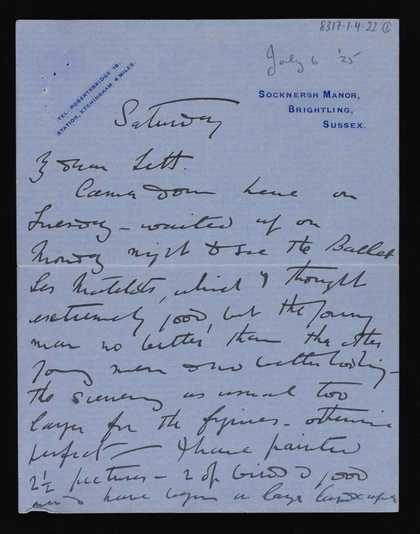 8317-1-4-22 ①
July 6 '25
TEL. ROBERTSBRIDGE 19.
STATION, ETCHINGHAM 4 MILES.
SOCKNERSH MANOR,
BRIGHTLING,
SUSSEX.
Saturday
My dear Lett.
Came down here on
Tuesday – waited up on
Monday night to see the Ballet
Les Matelots, which I thought
extremely good, but the young
man no better than the other
young men and
the scenery as usual too
large for the figures – otherwise
perfect – I have painted
2½ pictures – 2 of birds good
have begun a large landscape